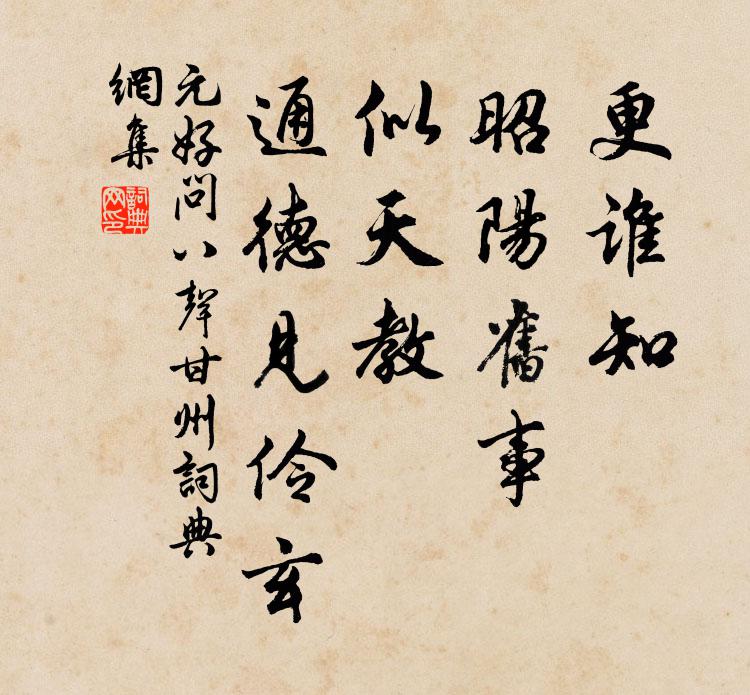 更誰知
昭陽舊事
似天教
通德見伶玄
元好問八聲甘州詞典
網集
詞典網印